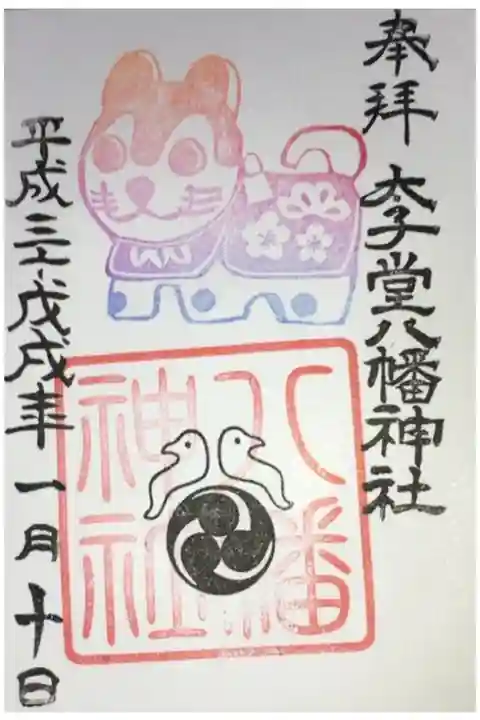 奉拝 太子堂八幡神社
八幡
神社
平成三十戊戌年 一月十日